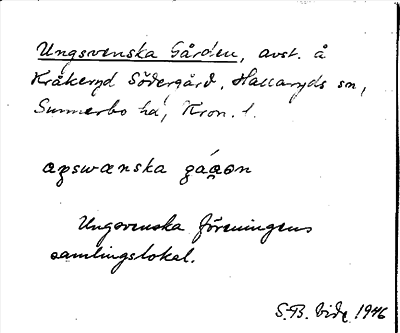 Ungsvenska Gården, avst. å
Kråkeryd Södergård, Hallaryds sn,
Sunnerbo hd, Kron. l.
Ungsvenska föreningens
samlingslokal.
S.B. Vide 1946